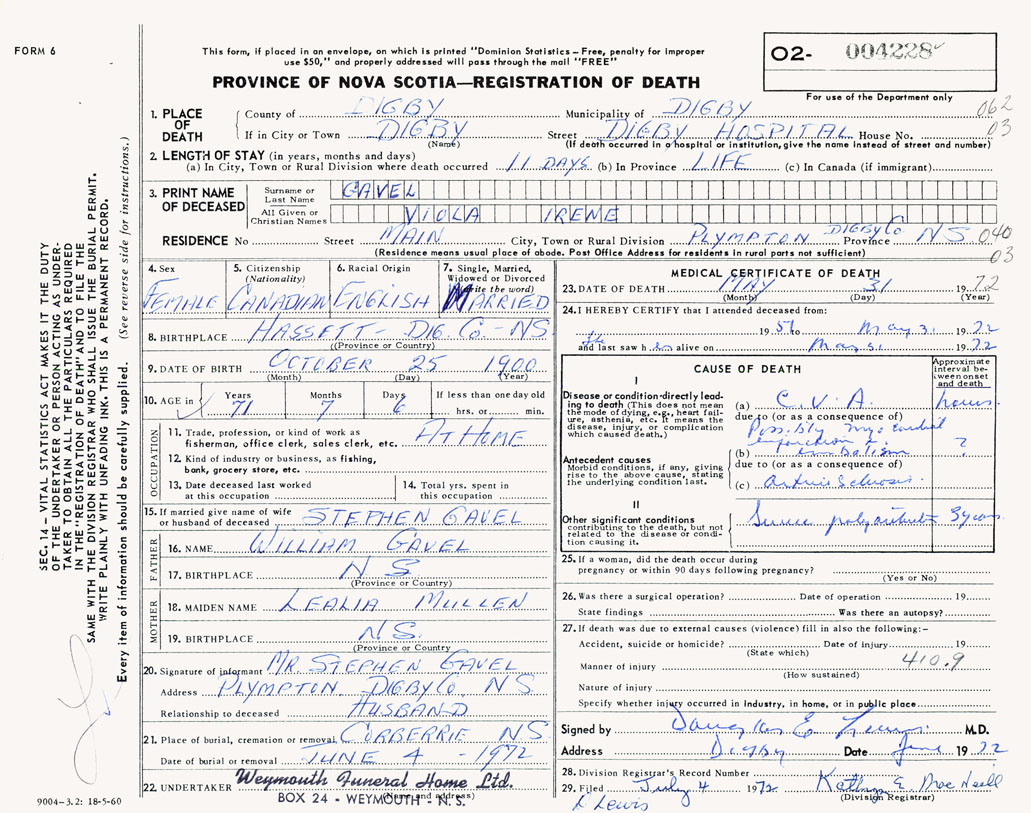 FORM 6
This form, if placed in an envelope, on which is printed "Dominion Statistics – Free, penalty for improper
use $50," and properly addressed will pass through the mail "FREE"
PROVINCE OF NOVA SCOTIA—REGISTRATION OF DEATH
O2- 004228
For use of the Department only
062
03
1. PLACE OF DEATH
County of DIGBY Municipality of DIGBY
If in City or Town DIGBY Street DIGBY HOSPITAL House No.
(Name) (If death occurred in a hospital or institution, give the name instead of street and number)
2. LENGTH OF STAY (in years, months and days)
(a) In City, Town or Rural Division where death occurred 11 DAYS (b) In Province LIFE (c) In Canada (if immigrant)
3. PRINT NAME OF DECEASED
Surname or Last Name GAVEL
All Given or Christian Names VIOLA IRENE
RESIDENCE No Street MAIN City, Town or Rural Division PLYMPTON DIGBY Co Province NS 040
03
(Residence means usual place of abode. Post Office Address for residents in rural parts not sufficient)
4. Sex FEMALE
5. Citizenship (Nationality) CANADIAN
6. Racial Origin ENGLISH
7. Single, Married, Widowed or Divorced (write the word) MARRIED
8. BIRTHPLACE HASSETT - DIG. Co - NS
(Province or Country)
9. DATE OF BIRTH OCTOBER 25 1900
(Month) (Day) (Year)
10. AGE in Years 71 Months 7 Days 6 If less than one day old hrs. or min.
OCCUPATION
11. Trade, profession, or kind of work as fisherman, office clerk, sales clerk, etc. AT HOME
12. Kind of industry or business, as fishing, bank, grocery store, etc.
13. Date deceased last worked at this occupation
14. Total yrs. spent in this occupation
15. If married give name of wife or husband of deceased STEPHEN GAVEL
FATHER
16. NAME WILLIAM GAVEL
17. BIRTHPLACE N S
(Province or Country)
MOTHER
18. MAIDEN NAME LEALIA MULLEN
19. BIRTHPLACE N.S.
(Province or Country
20. Signature of informant MR. STEPHEN GAVEL
Address PLYMPTON DIGBY Co, NS
Relationship to deceased HUSBAND
21. Place of burial, cremation or removal CORBERRIE NS
Date of burial or removal JUNE 4 - 1972
22. UNDERTAKER Weymouth Funeral Home Ltd.
(Name and address)
BOX 24 - WEYMOUTH - N.S.
9004-3.2: 18-5-60
MEDICAL CERTIFICATE OF DEATH
23. DATE OF DEATH MAY 31 1972
(Month) (Day) (Year)
24. I HEREBY CERTIFY that I attended deceased from:
19 to May 31 1972
and last saw h er alive on May 31 1972
CAUSE OF DEATH
Approximate interval between onset and death
I
Disease or condition directly leading to death (This does not mean the mode of dying, e.g., heart failure, asthenia, etc. It means the disease, injury, or complication which caused death.)
(a) C.V.A. hours
due to (or as a consequence of)
Possibly myocardial
infarction
(b) embolism ?
Antecedent causes
Morbid conditions, if any, giving rise to the above cause, stating the underlying condition last.
due to (or as a consequence of)
(c)
II
Other significant conditions
contributing to the death, but not related to the disease or condition causing it.
Severe polyarthritis
25. If a woman, did the death occur during
pregnancy or within 90 days following pregnancy?
(Yes or No)
26. Was there a surgical operation? Date of operation 19
State findings Was there an autopsy?
27. If death was due to external causes (violence) fill in also the following:–
Accident, suicide or homicide? Date of injury 19
(State which)
Manner of injury 410.9
(How sustained)
Nature of injury
Specify whether injury occurred in industry, in home, or in public place
Signed by Douglas E Lewis M.D.
Address Digby Date June 1972
28. Division Registrar's Record Number
29. Filed July 4 1972 Kathryn E. MacNeill
(Division Registrar)
Lewis
SEC. 14 – VITAL STATISTICS ACT MAKES IT THE DUTY
OF THE UNDERTAKER OR PERSON ACTING AS UNDER-
TAKER TO OBTAIN ALL THE PARTICULARS REQUIRED
IN THE "REGISTRATION OF DEATH" AND TO FILE THE
SAME WITH THE DIVISION REGISTRAR WHO SHALL ISSUE THE BURIAL PERMIT.
WRITE PLAINLY WITH UNFADING INK. THIS IS A PERMANENT RECORD.
Every item of information should be carefully supplied. (See reverse side for instructions.)